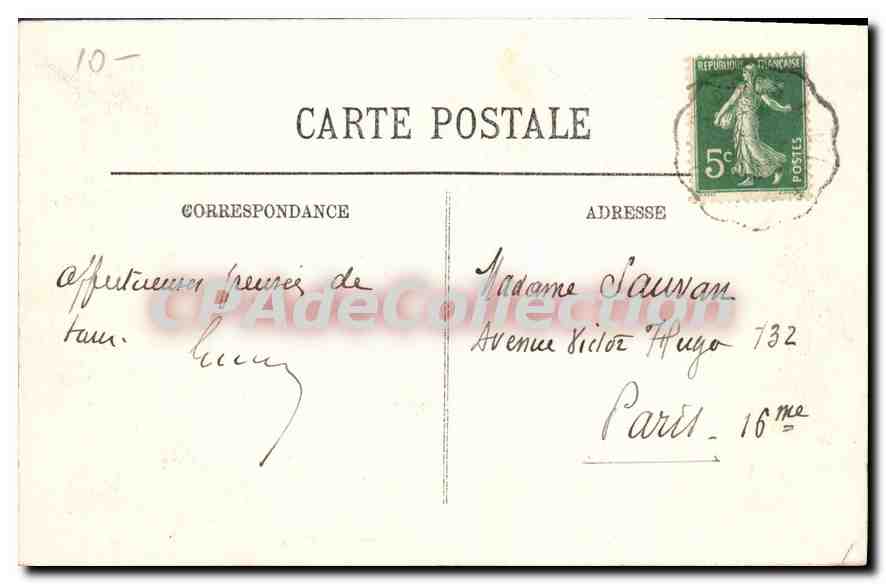 10-
REPUBLIQUE FRANÇAISE
5c
POSTES
CARTE POSTALE
CORRESPONDANCE
ADRESSE
affectueuses pensées de
tous.
Madame Sauvan
Avenue Victor Hugo 132
Paris - 16me
CPAdeCollection